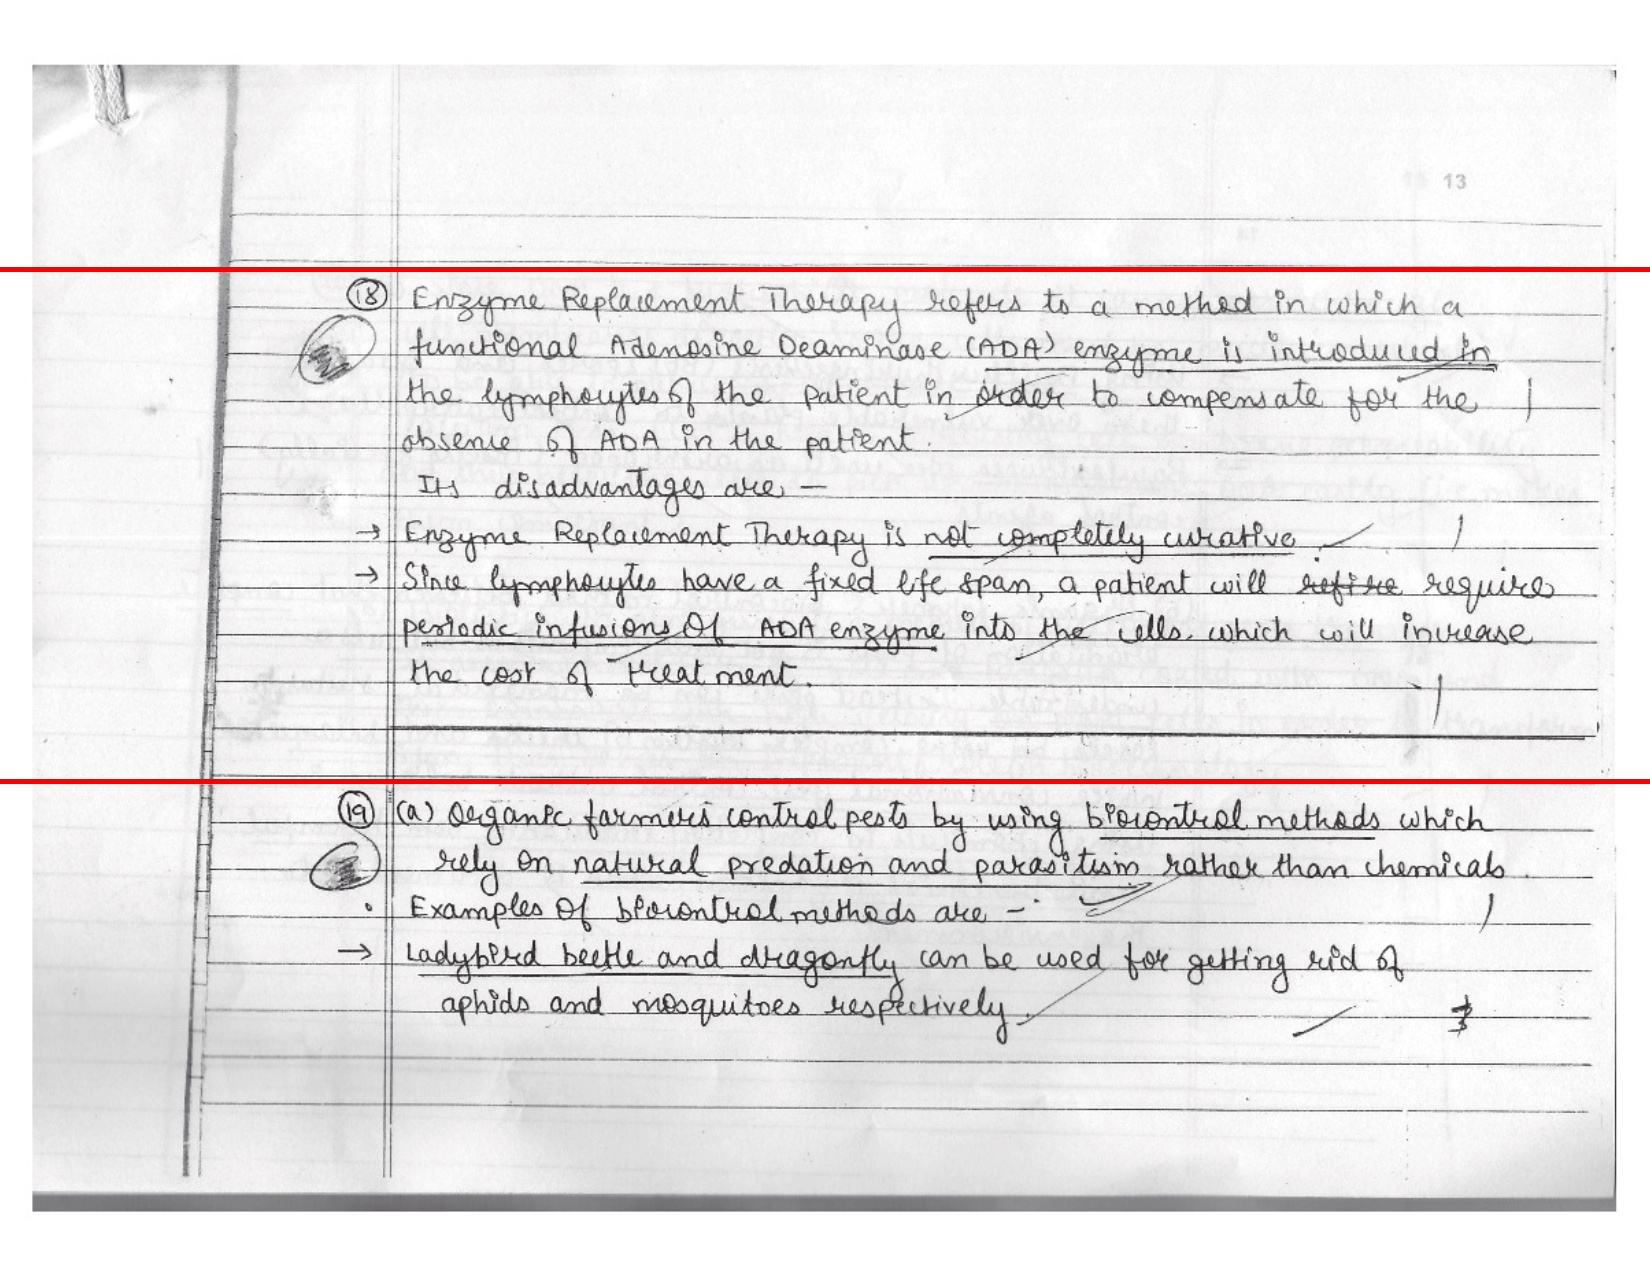 13
18 Enzyme Replacement Therapy refers to a method in which a
functional Adenosine Deaminase (ADA) enzyme is introduced in
the lymphocytes of the patient in order to compensate for the
absense of ADA in the patient.
Its disadvantages are –
→ Enzyme Replacement Therapy is not completely curative.
→ Since lymphocytes have a fixed life span, a patient will require
periodic infusions Of ADA enzyme into the cells which will increase
the cost of treatment.
19 (a) Organic farmers control pests by using biocontrol methods which
rely on natural predation and parasitism rather than chemicals.
• Examples Of biocontrol methods are –
→ Ladybird beetle and dragonfly can be used for getting rid of
aphids and mosquitoes respectively.